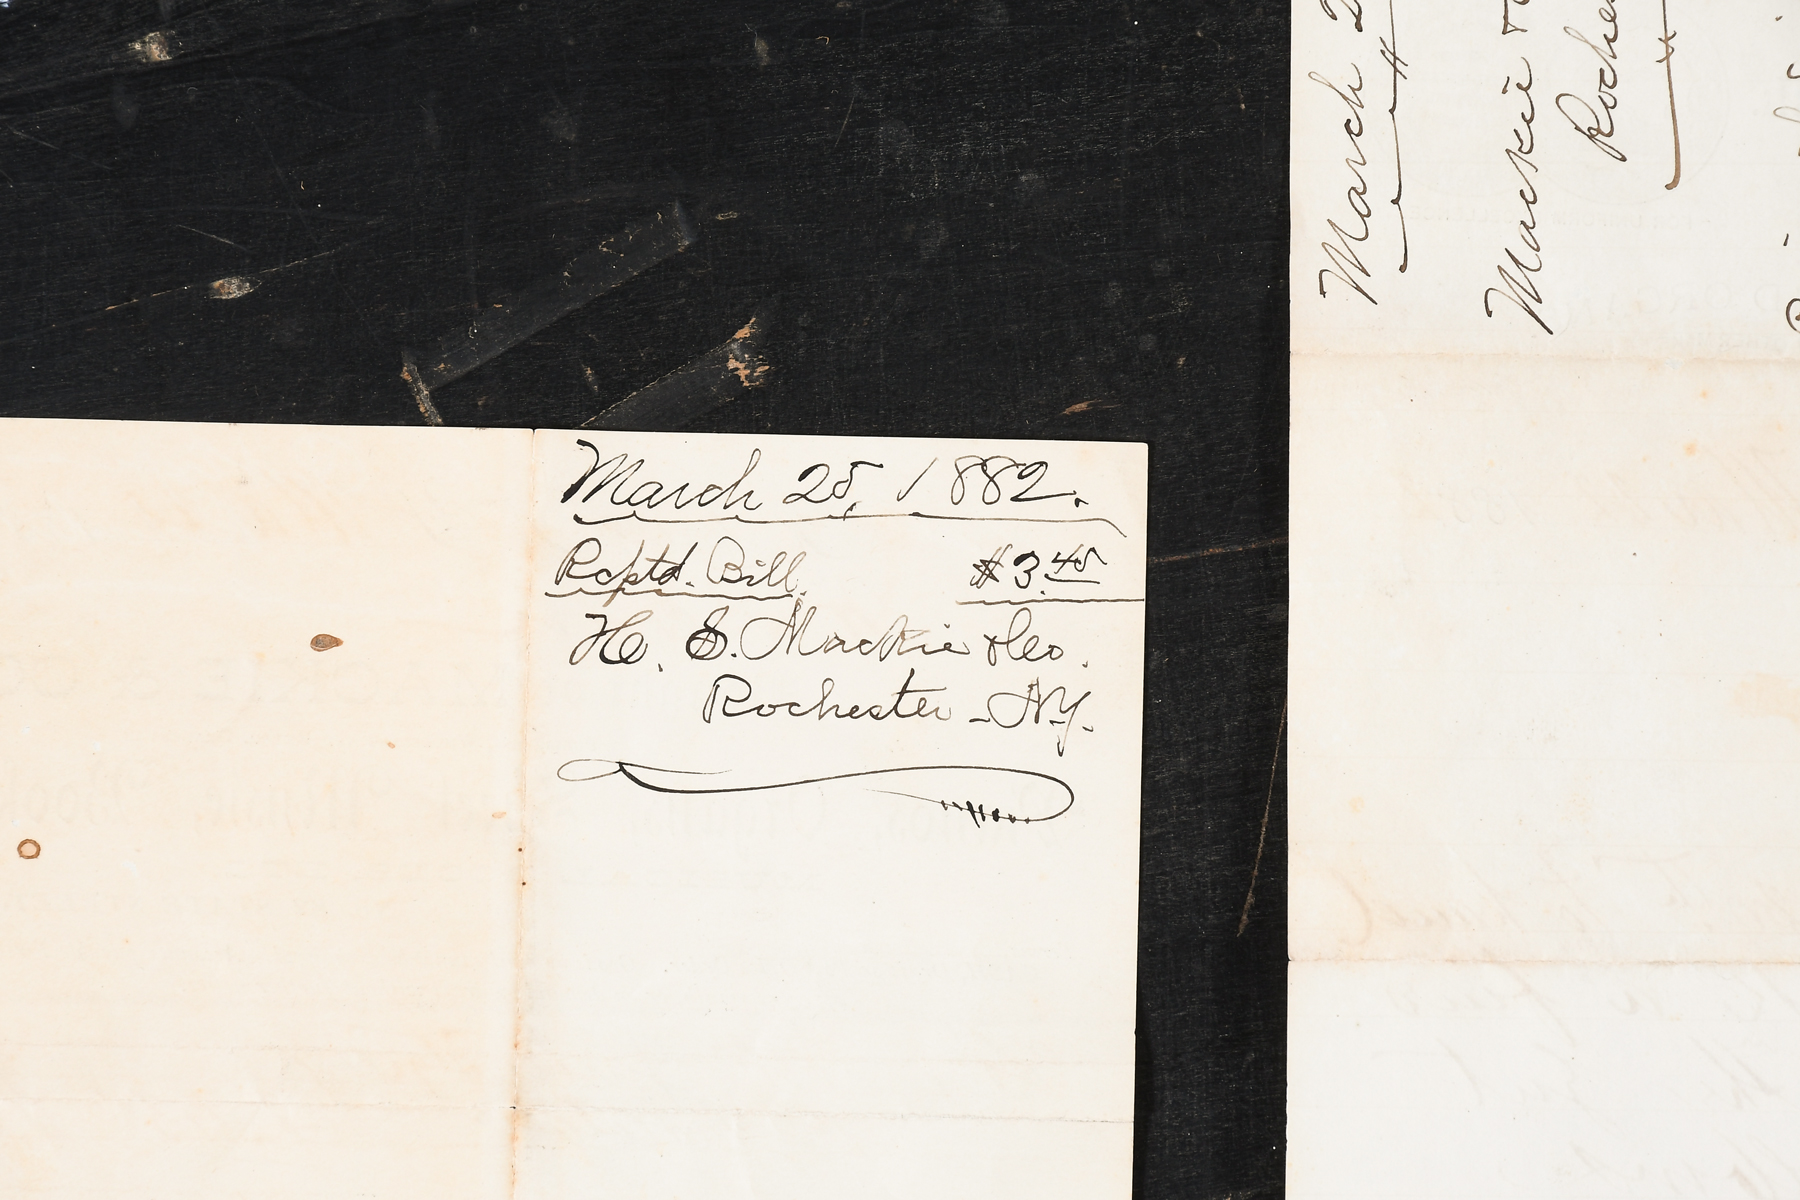 March 25, 1882.
Rcptd. Bill. $3.45
H. S. Mackie & Co.
Rochester - N.Y.
March
Mackie &
Roche